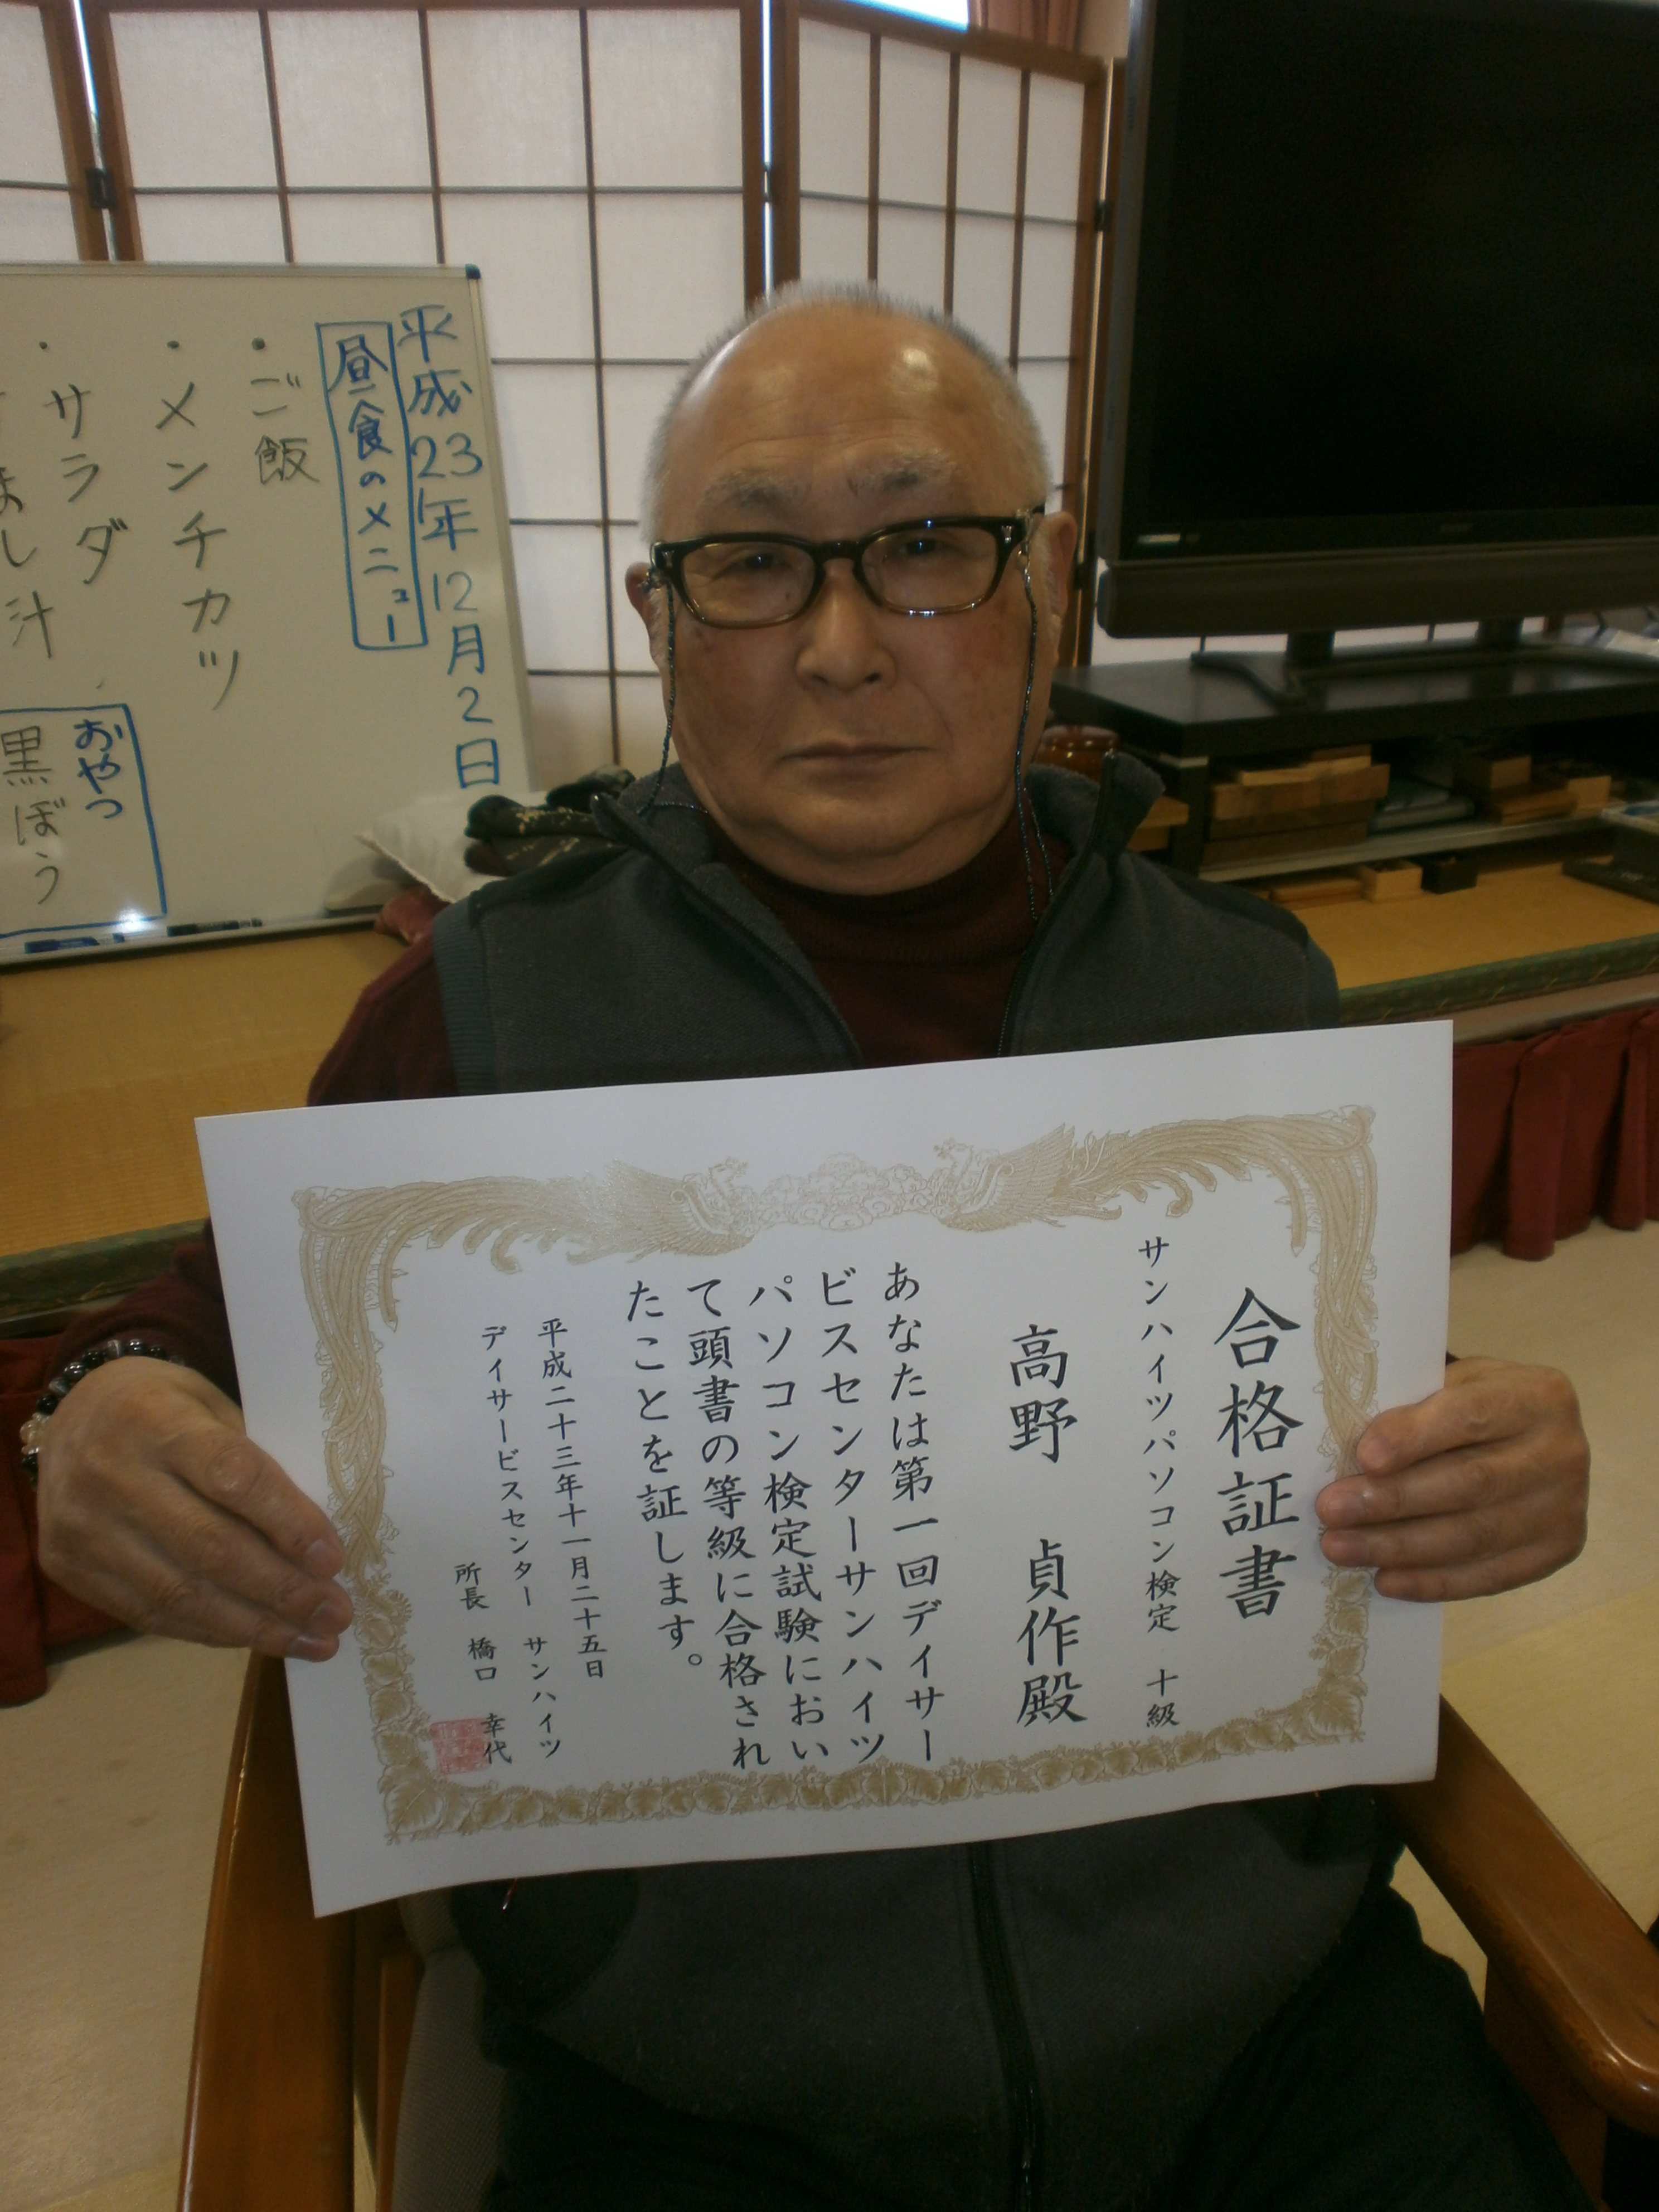 平成23年12月2日
昼食のメニュー
・ご飯
・メンチカツ
・サラダ
まし汁
おやつ
黒ぼう
合格証書
サンハイツパソコン検定 十級
高野 貞作殿
あなたは第一回デイサー
ビスセンターサンハイツ
パソコン検定試験におい
て頭書の等級に合格され
たことを証します。
平成二十三年十一月二十五日
デイサービスセンター サンハイツ
所長 橋口 幸代